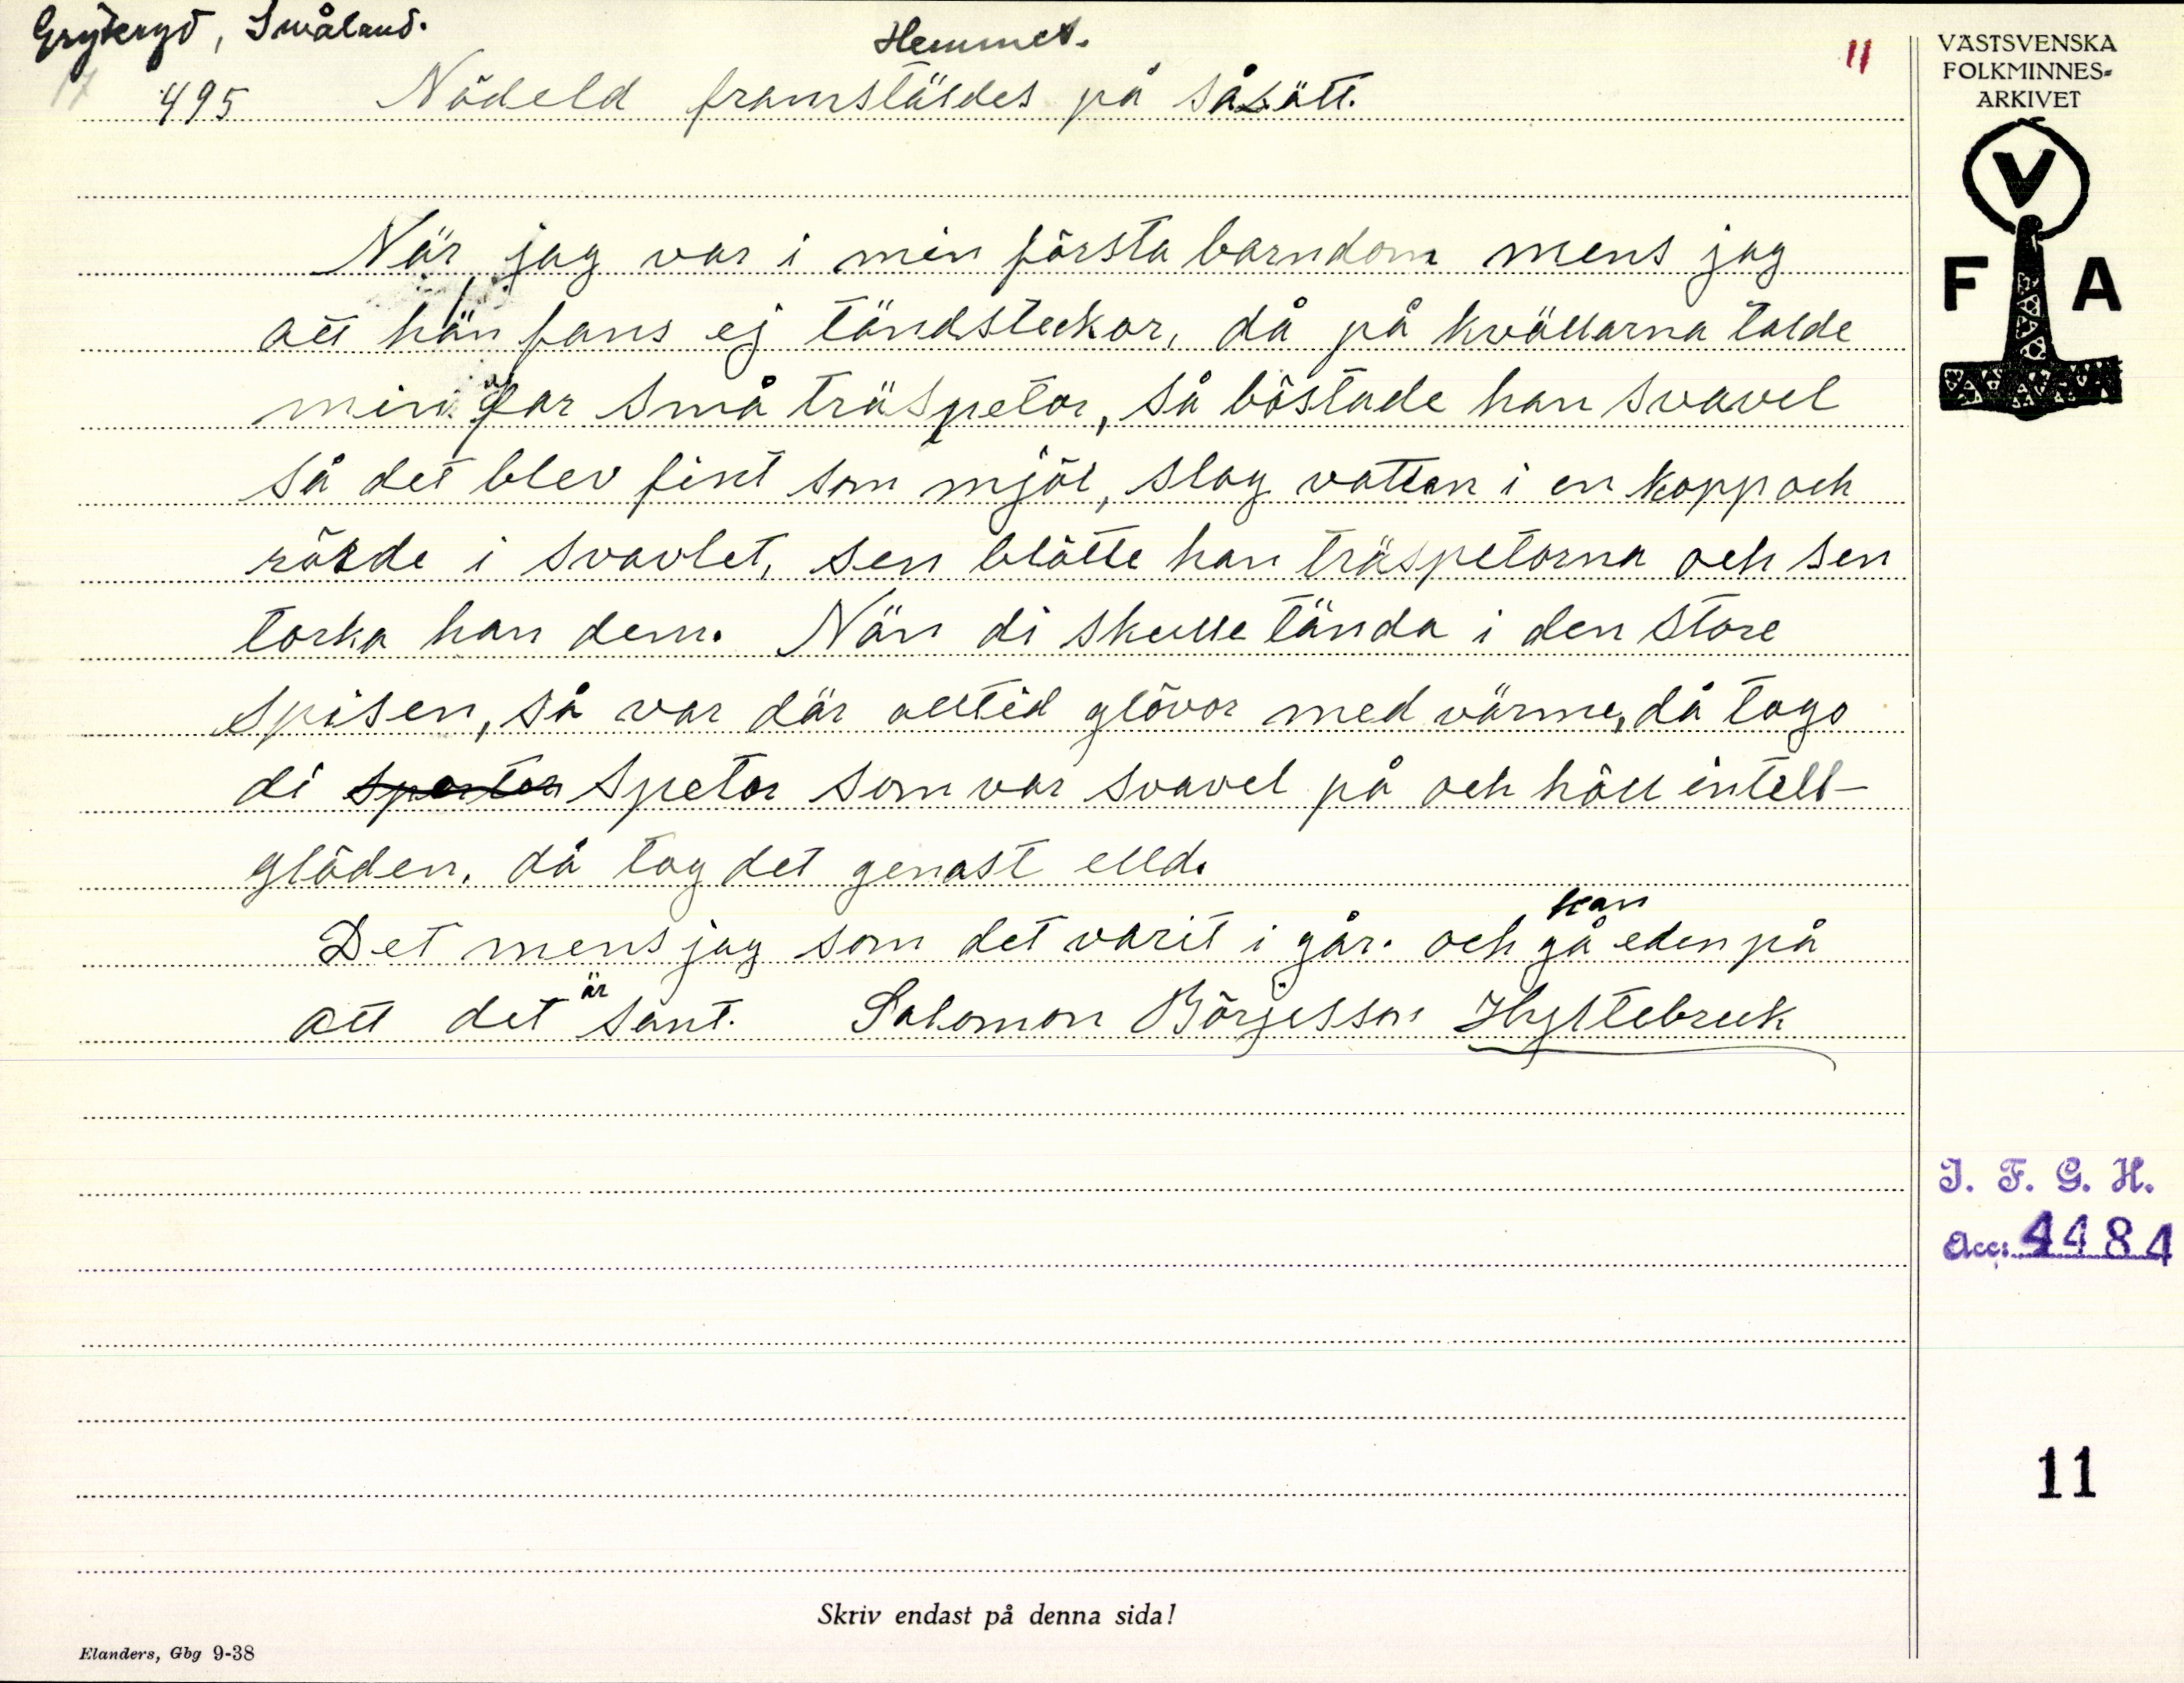 Gryteryd, Småland.
Hemmet.
11
17
495 Nödeld framstäldes på såsätt.
När jag var i min första barndom mens jag
att hän fans ej tändsteckor, då på kvällarna tälde
min far små träspetor, så böstade han svavel
så det blev fint som mjöl, slog vatten i en kopp och
rörde i svavlet, sen blötte han träspetorna och sen
torka han dem. När di skulle tända i den store
spisen, så var där alltid glövor med värme, då togo
di spetor som var svavel på och höll intell-
glöden, då tog det genast elld.
Det mens jag som det varit i går. och kan gå eden på
att det är sant. Salomon Börjesson Hyltebruk
VÄSTSVENSKA
FOLKMINNES-
ARKIVET
V
F A
I. F. G. H.
Acc: 4484
11
Skriv endast på denna sida!
Elanders, Gbg 9-38